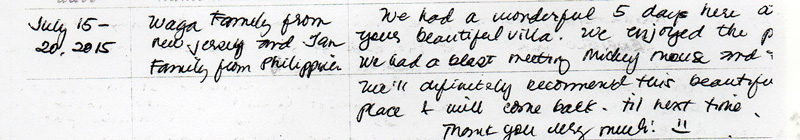 July 15 -
20. 2015
Waga Family from
New Jersey and Tan
Family from Philippines
We had a wonderful 5 days here
your beautiful villa. We enjoyed the
We had a blast meeting Mickey Mouse and
We'll definitely recommend this
place & will come back. Til next time.
Thank you very much!